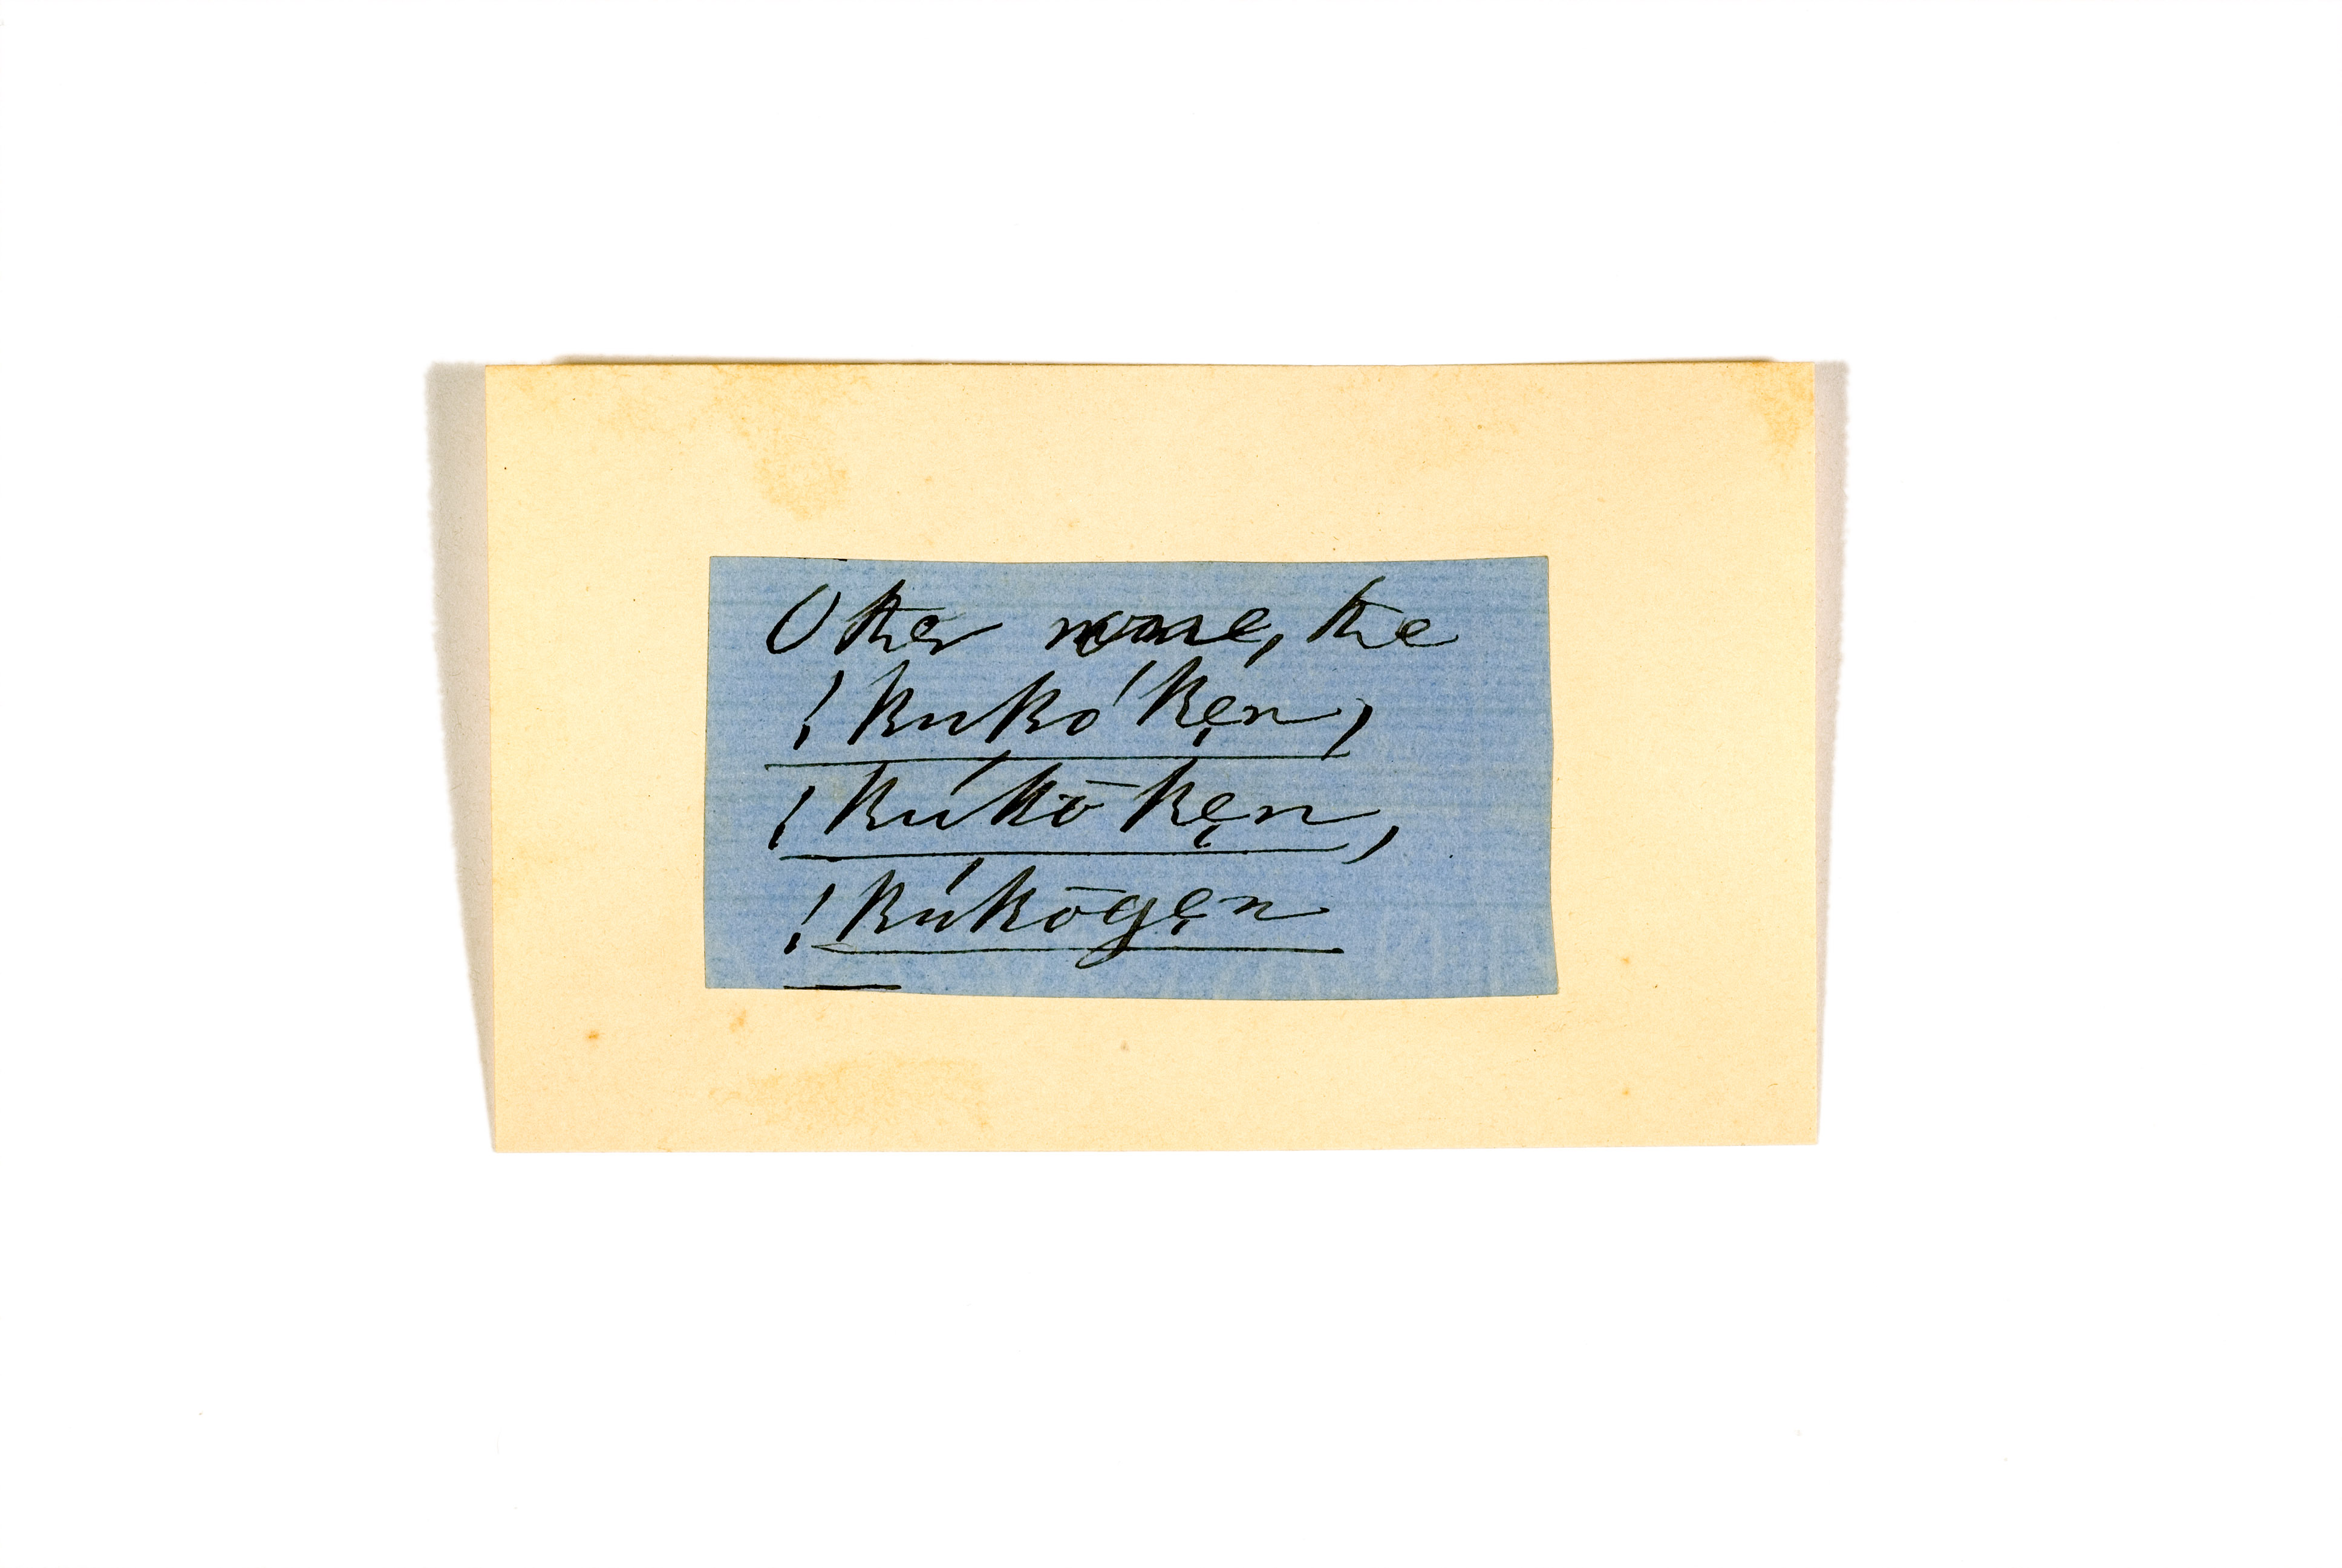 Other name, the
!kukó'kẹn,
!kú'kōkẹn,
!kú'kōgẹn